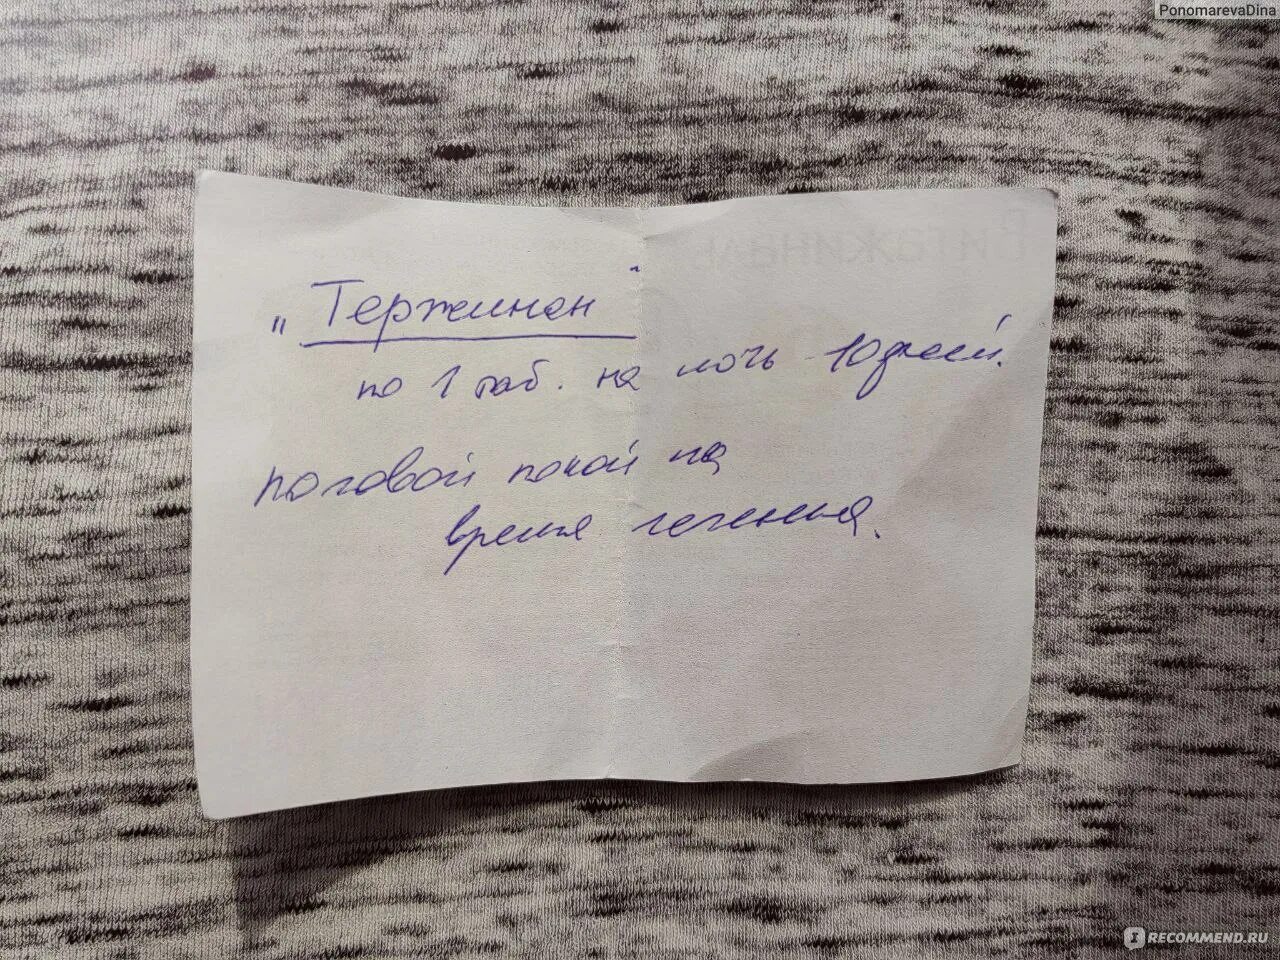 PonomarevaDina
„Тержинан"
по 1 таб. на ночь 10 дней.
половой покой на
время лечения.
IRECOMMEND.RU